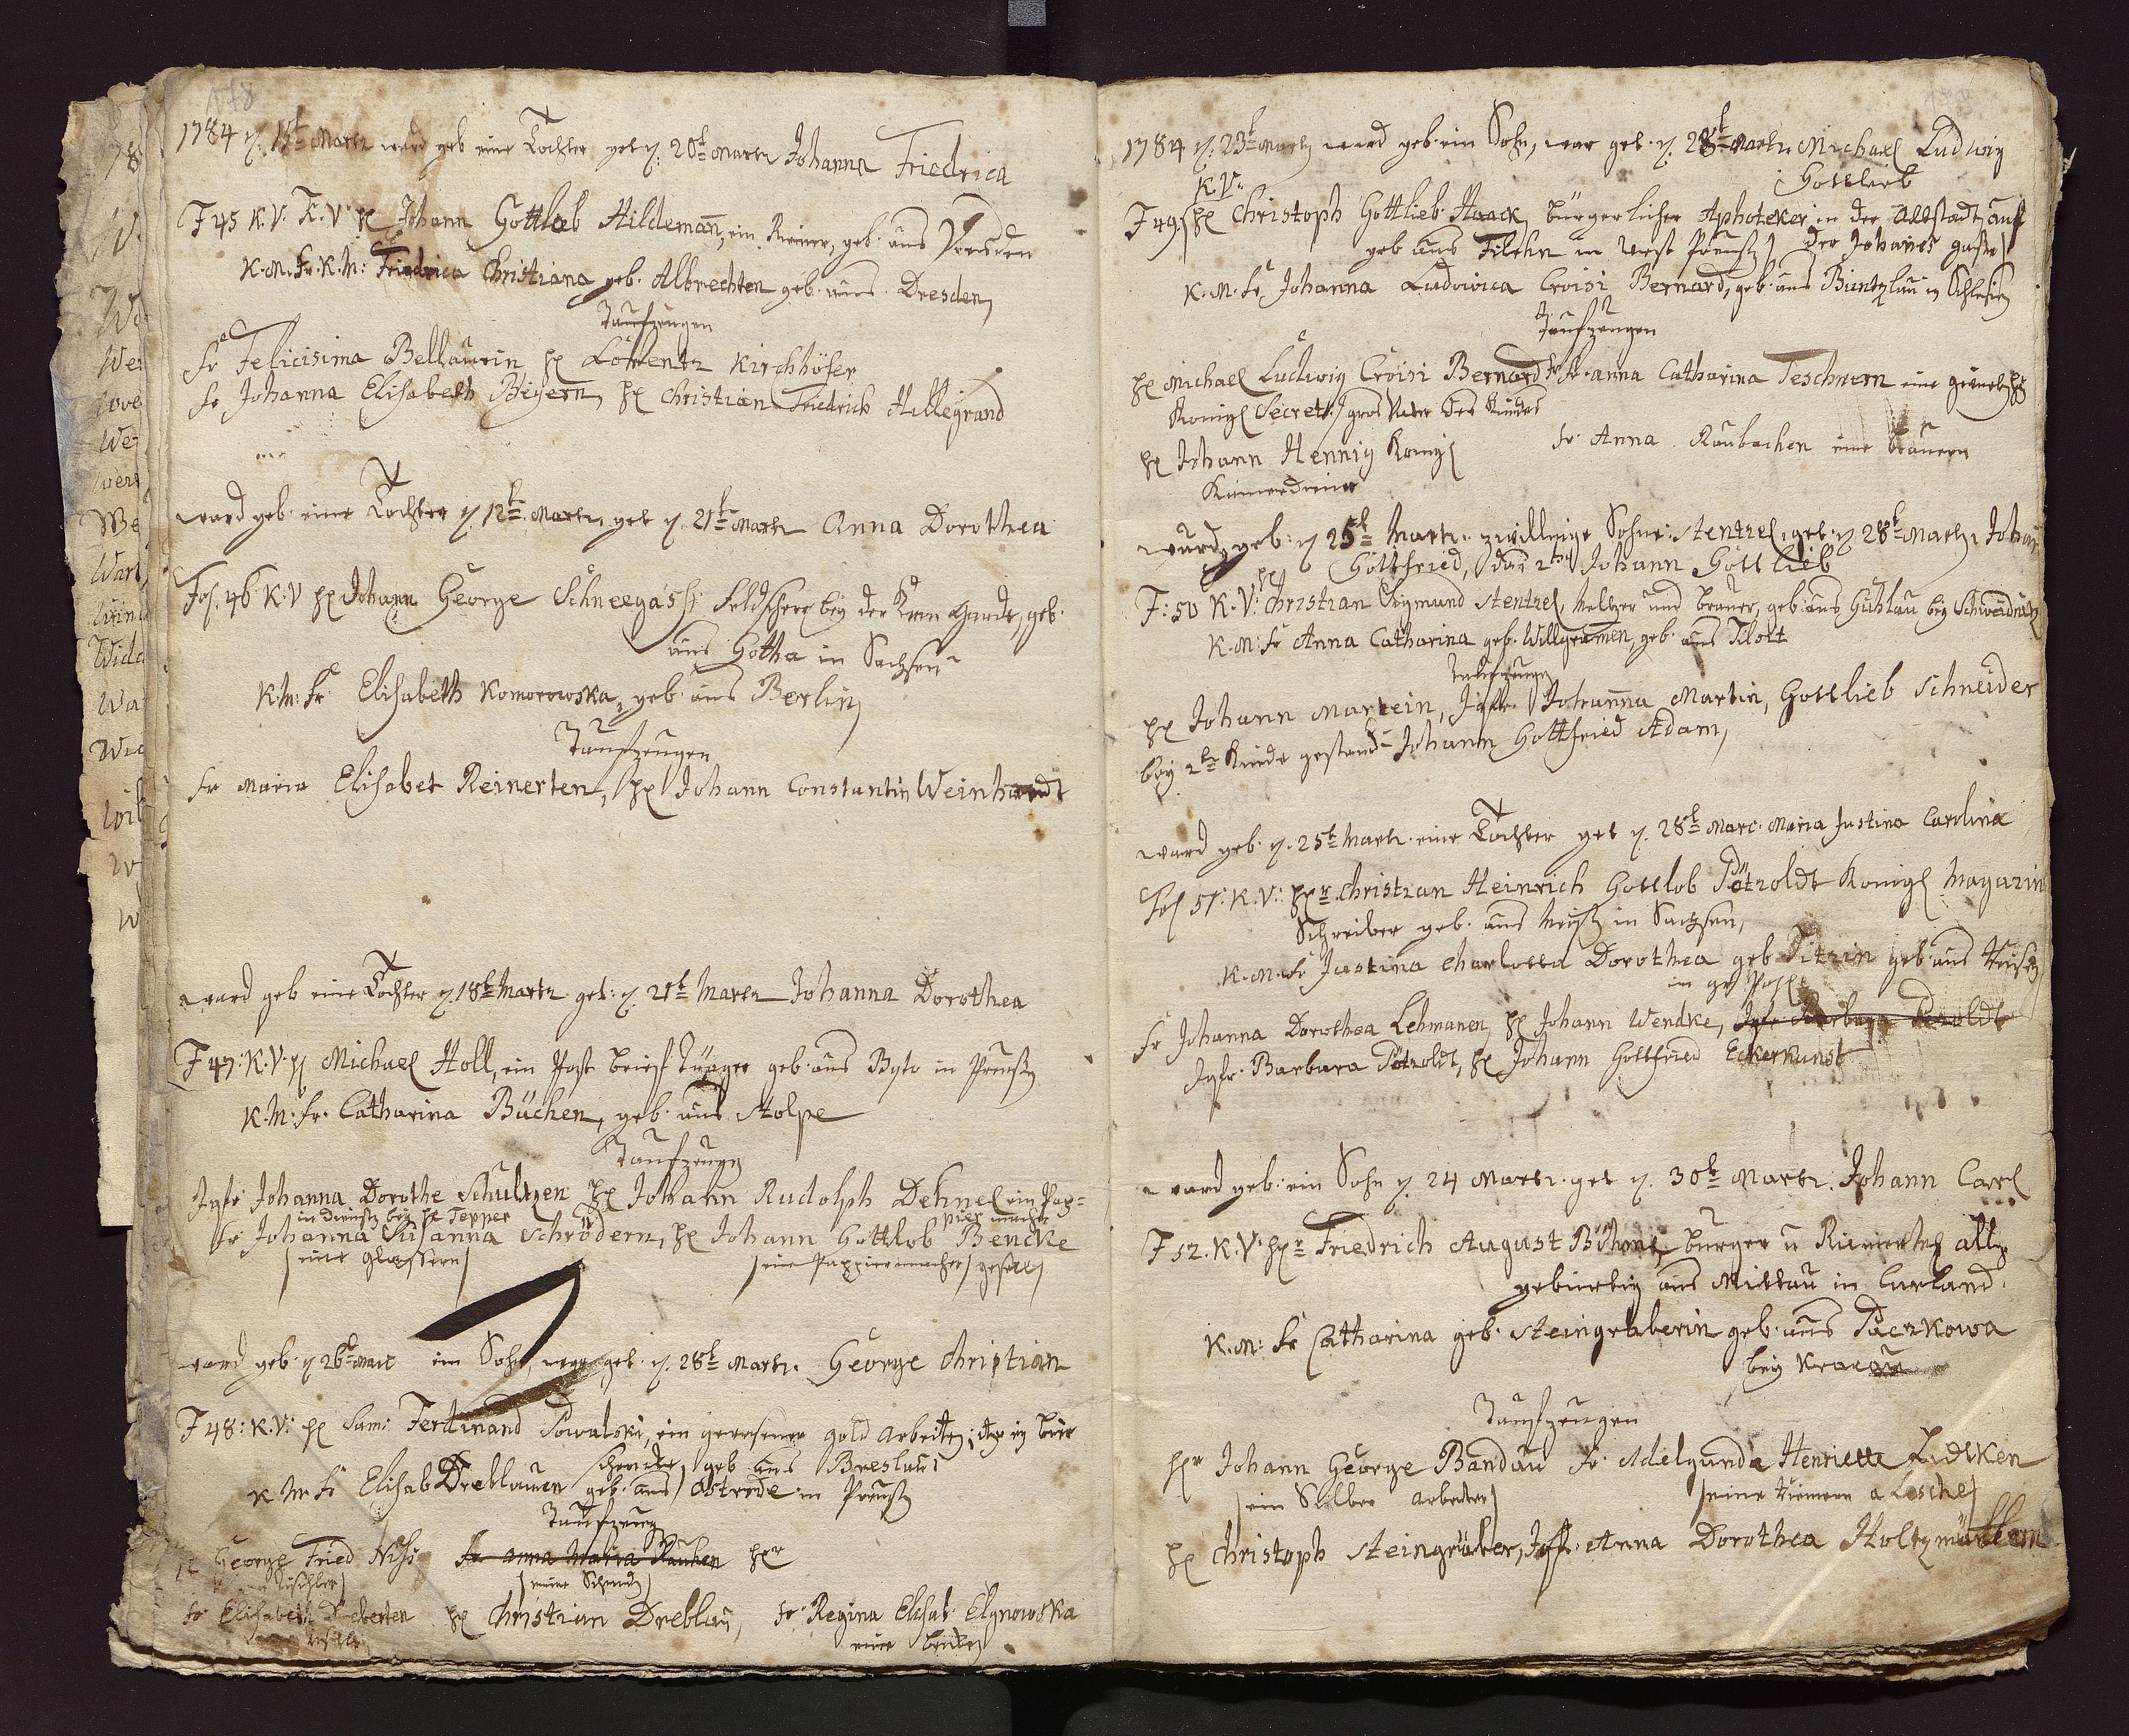 178
1784 d. 15t Martz ward geb eine Tochter get d. 20t Martz Johanna Friedrica
F 45 K.V. K.V. H Johann Gottlob Hildeman, ein Riemer, geb. aus Dresden
K.M. Fr. K.M: Friedrica Christiana geb. Albrechten geb. aus Dresden
Taufzeugen
Fr Felicisima Bellaurin H Lorentz Kirchhöfer
Fr Johanna Elisabeth Beyern, H Christian Friedrich Hillegrand
ward geb. eine Tochter d 12t Martz, get d. 21t Martz Anna Dorothea
Fol. 46 K.V H Johann George Schneegass Feldscherr bey der Garde, geb.
aus Gotha in Sachsen
K.M: Fr. Elisabeth Komorowska, geb. aus Berlin
Taufzeugen
Fr Maria Elisabet Reinerten, H Johann Constantin Weinhardt
ward geb eine Tochter d 18t Martz get: d. 21t Martz Johanna Dorothea
F 47: K.V. H Michael Holl, ein Post brief Träger geb. aus in Preuss
K.M: Fr. Catharina Büchen, geb. aus Stolpe
Taufzeugen
Jgfr Johanna Dorothe Schultzen H Johann Rudolph Dehnel ein Pap-
in dienst bey H Tepper pier macher
Fr Johanna Susanna Schrödern, H Johann Gottlob Bencke
eine Glassern ein Pappiermacher gesell
ward geb. d 26t Mart ein Sohn, war get. d. 28t Martz. George Christian
F 48: K.V: H Sam: Ferdinand Kowalski, ein gold Arbeiter, bier
schencke, geb aus Breslau
K M Fr Elisab Dreblauen geb. aus Ostrode in Preuss
Taufzeug
George Fried Fr Anna Maria Rauhen H
Tischler eine Schmidt
Fr Elisabeth Dreberten H Christian Dreblau, Fr Regina Elisab. Elgnowska
eine
1784 d. 23t Martz ward geb. ein Sohn, war get. d. 28t Martz Michael Ludwig
Gottlieb
K.V.
F 49. H Christoph Gottlieb Haack, bürgerlicher Aphoteker in der Altstadt auf
geb aus Filehn in West Preuss der Johanes gasse
K.M. Fr Johanna Ludowica Croisi Bernard, geb. aus Buntzlau in Schlesien
Taufzeugen
H Michael Ludwig Croisi Bernard Fr Anna Catharina Teschnern eine
Konigl Secret: gros Vater des Kindes
H Johann Hennig Konigl Fr. Anna Raubachen eine Brauern
Kamerdiener
wurd geb: d 25t Martz. zwillinge Sohne Stentzel, get. d 28t Martz. Johan
Gottfried, das 2te Johann Gottlieb
F: 50 K.V: H Christian Sigmund Stentzel, Meltzer und Brauer, geb. aus Guhlau bey Schweidnitz
K.M: Fr Anna Catharina geb. Willgramen, geb. aus Tilott
Taufzeuge
H Johann Martein, Jgfr. Johanna Martin, Gottlieb Schneider
bey 2te Kinde gestand Johann Gottfried Adam,
ward geb. d. 25t Martz. eine Tochter get d. 28t Marc. Maria Justina Carolina
Fol 51: K.V: Hr. Christian Heinrich Gottlob Pötzoldt Konigl Magazin
Schreiber geb. aus in Sachsen,
K.M. Fr Justina Charlotta Dorothea geb Titzin geb. aus
in gr Pohl
Fr Johanna Dorothea Lehmanen, H Johann Wendke, Jgfr Barbara Petzoldt
Jgfr. Barbara Pötzoldt, H Johann Gottfried Eckerkunst
ward geb. ein Sohn d. 24 Martz. get d. 30t Martz. Johann Carl
F 52. K.V. Hr Friedrich August Böhme, burger u Riemer
gebürtig aus Mittau in Curland.
K.M: Fr Catharina geb. Steingräberin geb. aus Paczkowa
bey Kracau
Taufzeugen
Hr Johann George Bandau Fr. Adelgunda Henriette Lidtken
ein Silber arbeiter eine Riemern a Lesche
H Christoph Steingräber, Jgfr. Anna Dorothea Holtzmüllern